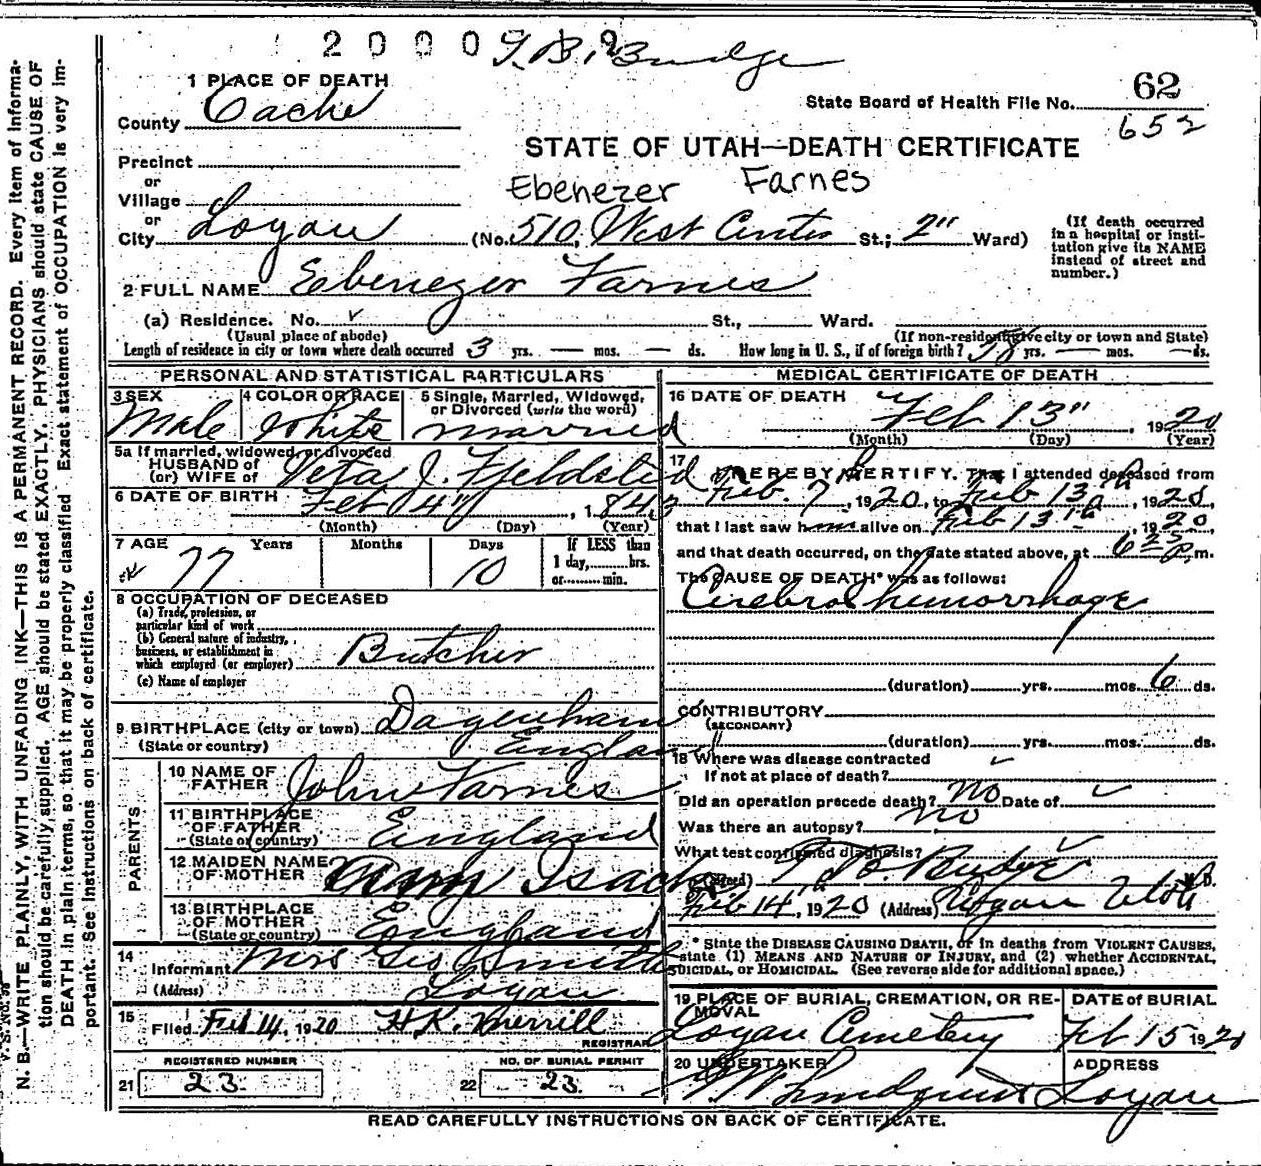 2 0 0 0 9 T. B. Budge
1 PLACE OF DEATH
County Cache
State Board of Health File No. 62
652
STATE OF UTAH—DEATH CERTIFICATE
Precinct
or
Village
Ebenezer Farnes
or
City Logan (No. 510, West Center St.; 2" Ward)
(If death occurred in a hospital or institution give its NAME instead of street and number.)
2 FULL NAME Ebenezer Farnes
(a) Residence. No. St., Ward.
(Usual place of abode) (If non-resident give city or town and State)
Length of residence in city or town where death occurred 3 yrs. — mos. — ds. How long in U. S., if of foreign birth? 58 yrs. — mos. — ds.
PERSONAL AND STATISTICAL PARTICULARS
3 SEX
Male
4 COLOR OR RACE
White
5 Single, Married, Widowed, or Divorced (write the word)
Married
5a If married, widowed, or divorced
HUSBAND of
(or) WIFE of Veta J. Fjeldsted
6 DATE OF BIRTH Feb 4" , 1843
(Month) (Day) (Year)
7 AGE Years Months Days If LESS than
77 10 1 day,......hrs.
or......min.
8 OCCUPATION OF DECEASED
(a) Trade, profession, or
particular kind of work
(b) General nature of industry,
business, or establishment in
which employed (or employer) Butcher
(c) Name of employer
9 BIRTHPLACE (city or town) Dagenham
(State or country) England
PARENTS
10 NAME OF
FATHER John Farnes
11 BIRTHPLACE
OF FATHER
(State or country) England
12 MAIDEN NAME
OF MOTHER Isack
13 BIRTHPLACE
OF MOTHER
(State or country) England
14
Informant Mrs Geo Smith
(Address) Logan
15
Filed Feb 14, 1920 H K. Merrill
REGISTRAR
REGISTERED NUMBER
21 23
NO. OF BURIAL PERMIT
22 23
MEDICAL CERTIFICATE OF DEATH
16 DATE OF DEATH Feb 13" , 1920
(Month) (Day) (Year)
17
I HEREBY CERTIFY, That I attended deceased from
Feb. 7, 1920, to Feb 13th, 1920,
that I last saw him alive on Feb 13th, 1920,
and that death occurred, on the date stated above, at p. m.
The CAUSE OF DEATH* was as follows:
Cerebral hemorrhage
(duration) yrs. mos. 6 ds.
CONTRIBUTORY
(SECONDARY)
(duration) yrs. mos. ds.
18 Where was disease contracted
If not at place of death?
Did an operation precede death? No Date of
Was there an autopsy? No
What test confirmed diagnosis?
(Signed) T. B. Budge M. D.
Feb 14, 1920 (Address) Logan Utah
* State the DISEASE CAUSING DEATH, or in deaths from VIOLENT CAUSES,
state (1) MEANS AND NATURE OF INJURY, and (2) whether ACCIDENTAL,
SUICIDAL, or HOMICIDAL. (See reverse side for additional space.)
19 PLACE OF BURIAL, CREMATION, OR REMOVAL
Logan Cemetery
DATE of BURIAL
Feb 15 1920
20 UNDERTAKER
Lindquist
ADDRESS
Logan
READ CAREFULLY INSTRUCTIONS ON BACK OF CERTIFICATE.
N. B.—WRITE PLAINLY, WITH UNFADING INK—THIS IS A PERMANENT RECORD. Every item of informa-
tion should be carefully supplied. AGE should be stated EXACTLY. PHYSICIANS should state CAUSE OF
DEATH in plain terms, so that it may be properly classified. Exact statement of OCCUPATION is very im-
portant. See instructions on back of certificate.